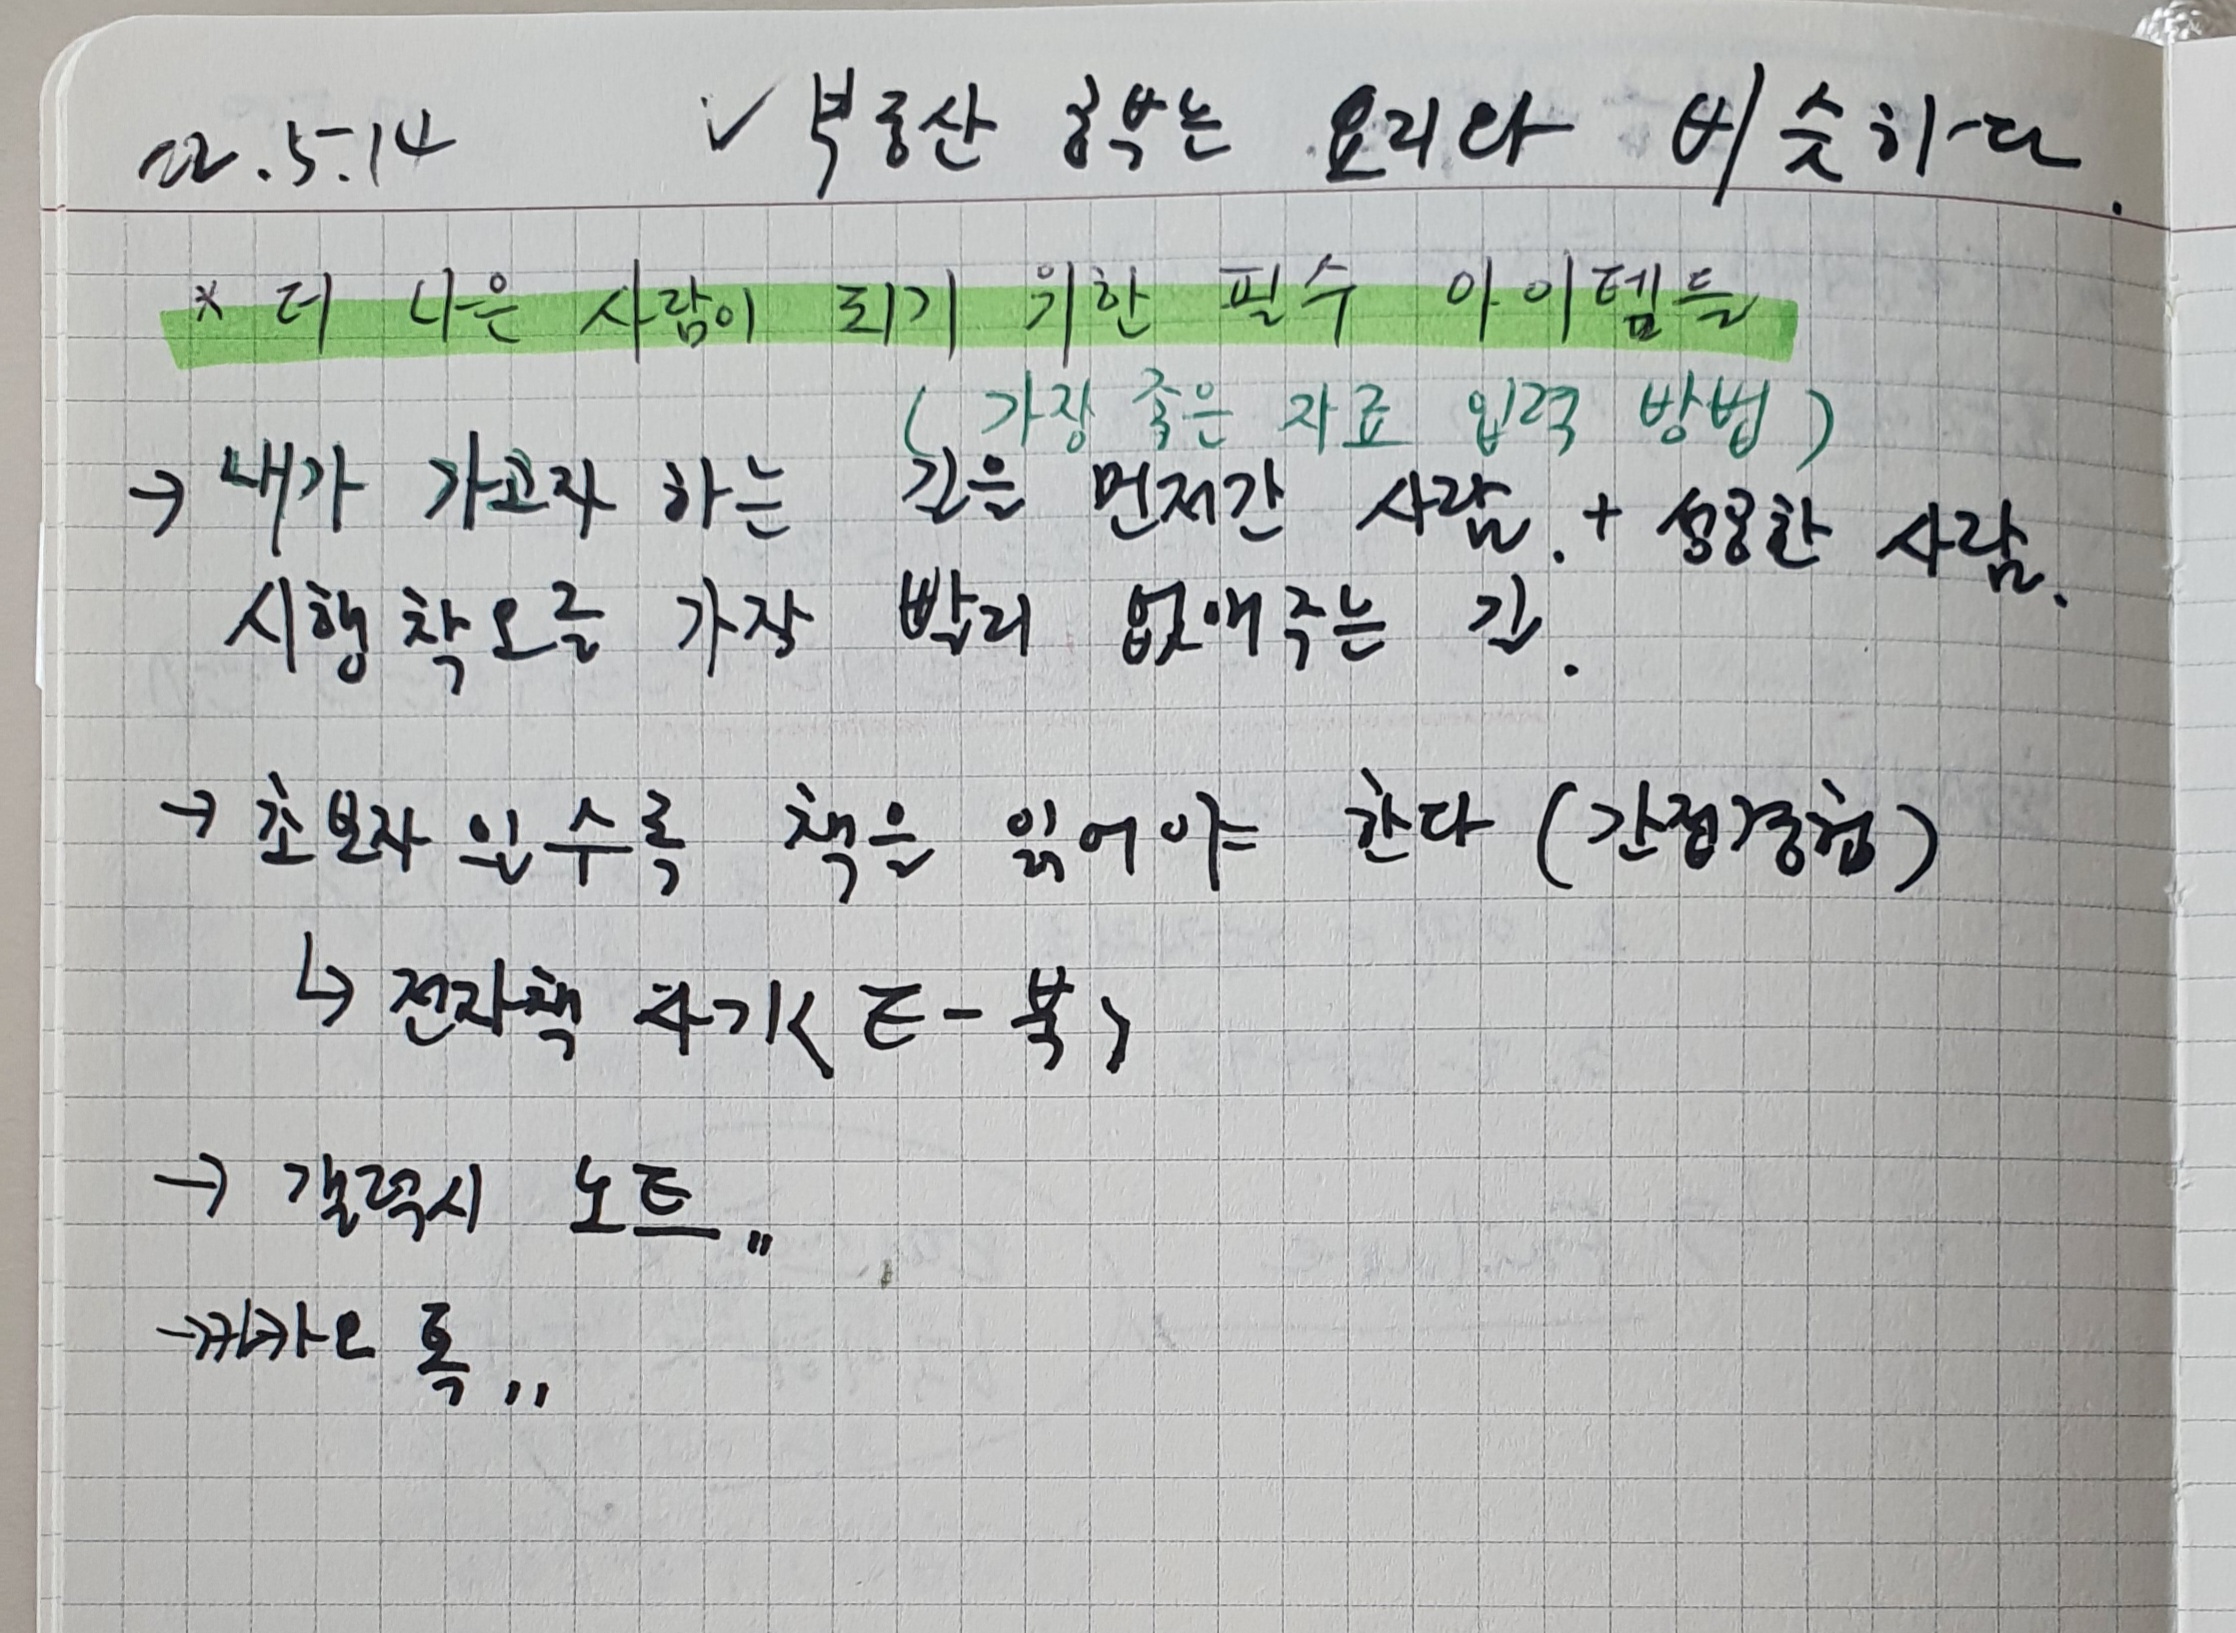 22.5.14 ✓ 부동산 공부는 요리와 비슷하다.
* 더 나은 사람이 되기 위한 필수 아이템들
(가장 좋은 자료 입력 방법)
→ 내가 가고자 하는 길을 먼저간 사람. + 성공한 사람.
시행착오를 가장 빨리 없애주는 길.
→ 초보자 인수록 책을 읽어야 한다 (간접경험)
↳ 전자책 사기 < E-북 >
→ 갤럭시 노트〃
→ 카카오 톡,,